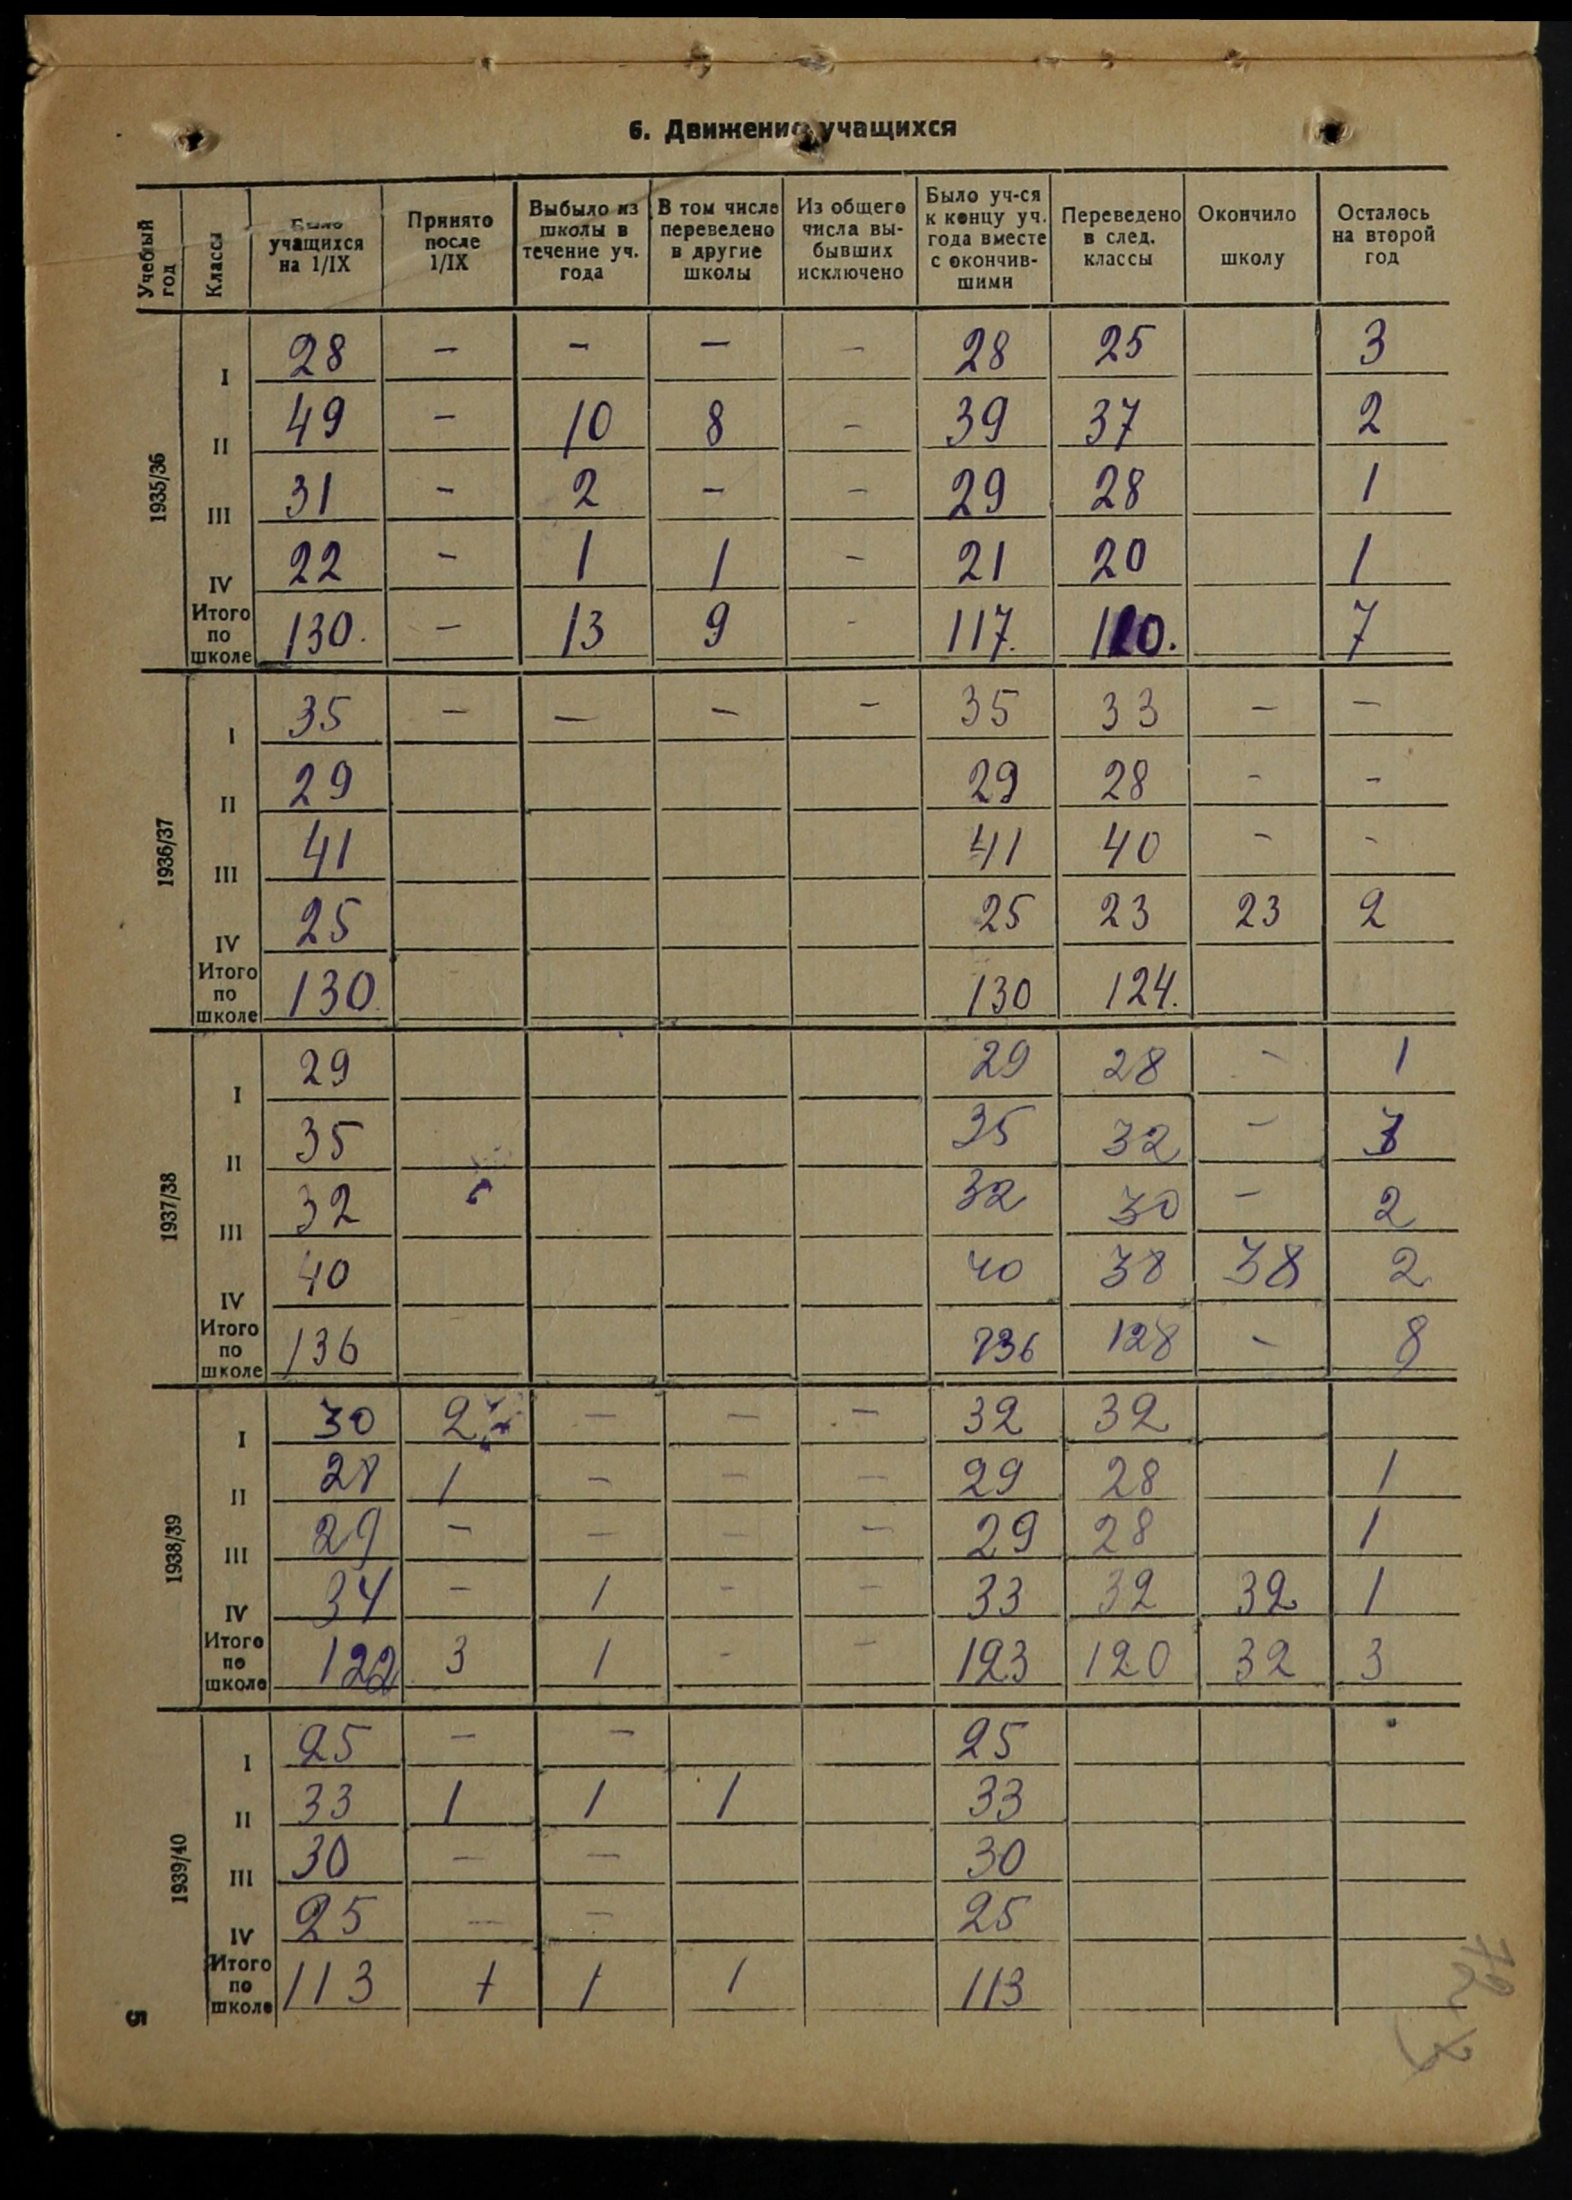 6. Движение учащихся
Учебый год | Классы | Было учащихся на 1/IX | Принято после 1/IX | Выбыло из школы в течение уч. года | В том числе переведено в другие школы | Из общего числа выбывших исключено | Было уч-ся к концу уч. года вместе с окончившими | Переведено в след. классы | Окончило школу | Осталось на второй год
1935/36
I 28 – – – – 28 25 3
II 49 – 10 8 – 39 37 2
III 31 – 2 – – 29 28 1
IV 22 – 1 1 – 21 20 1
Итого по школе 130. – 13 9 – 117. 110. 7
1936/37
I 35 – – – – 35 33 – –
II 29 29 28 – –
III 41 41 40 – –
IV 25 25 23 23 2
Итого по школе 130. 130 124.
1937/38
I 29 29 28 – 1
II 35 35 32 – 3
III 32 32 30 – 2
IV 40 40 38 38 2
Итого по школе 136 136 128 – 8
1938/39
I 30 2 – – – 32 32
II 28 1 – – – 29 28 1
III 29 – – – – 29 28 1
IV 34 – 1 – – 33 32 32 1
Итого по школе 122 3 1 – – 123 120 32 3
1939/40
I 25 – – 25
II 33 1 1 1 33
III 30 – – 30
IV 25 – – 25
Итого по школе 113 1 1 1 113
5